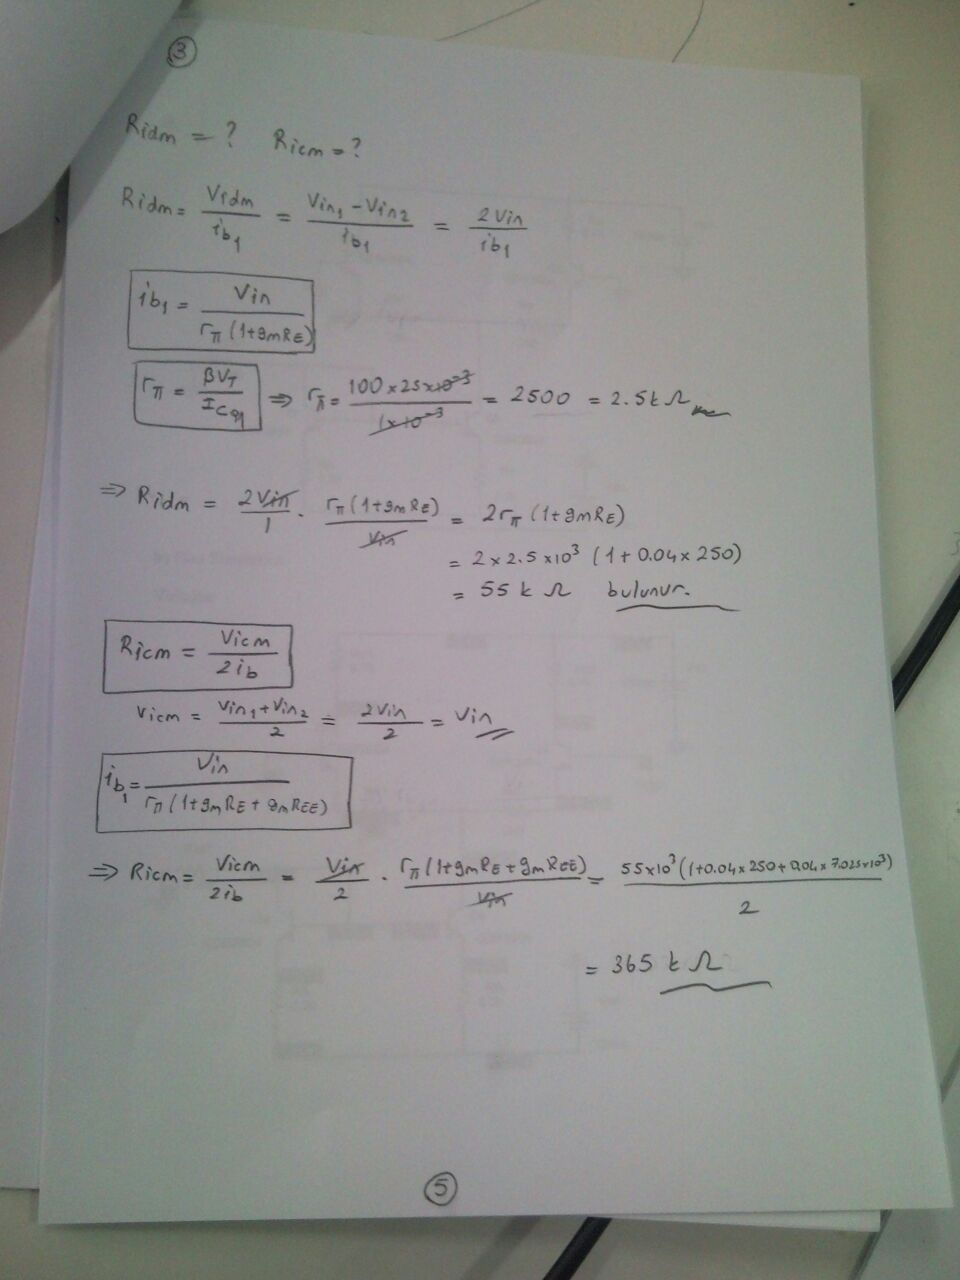 3
Ridm = ? Ricm = ?
Ridm = Vidm / ib1 = (Vin1 - Vin2) / ib1 = 2Vin / ib1
ib1 = Vin / rπ(1+gmRE)
rπ = βVT / ICQ1 ⇒ rπ = 100×25×10⁻³ / 1×10⁻³ = 2500 = 2.5k Ω
⇒ Ridm = 2Vin / 1 · rπ(1+gmRE) / Vin = 2rπ(1+gmRE)
= 2×2.5×10³ (1+0.04×250)
= 55 k Ω bulunur.
Ricm = Vicm / 2ib
Vicm = (Vin1+Vin2) / 2 = 2Vin / 2 = Vin
ib1 = Vin / rπ(1+gmRE+gmREE)
⇒ Ricm = Vicm / 2ib = Vin / 2 · rπ(1+gmRE+gmREE) / Vin = 55×10³(1+0.04×250+0.04×7.025×10³) / 2
= 365 k Ω
5